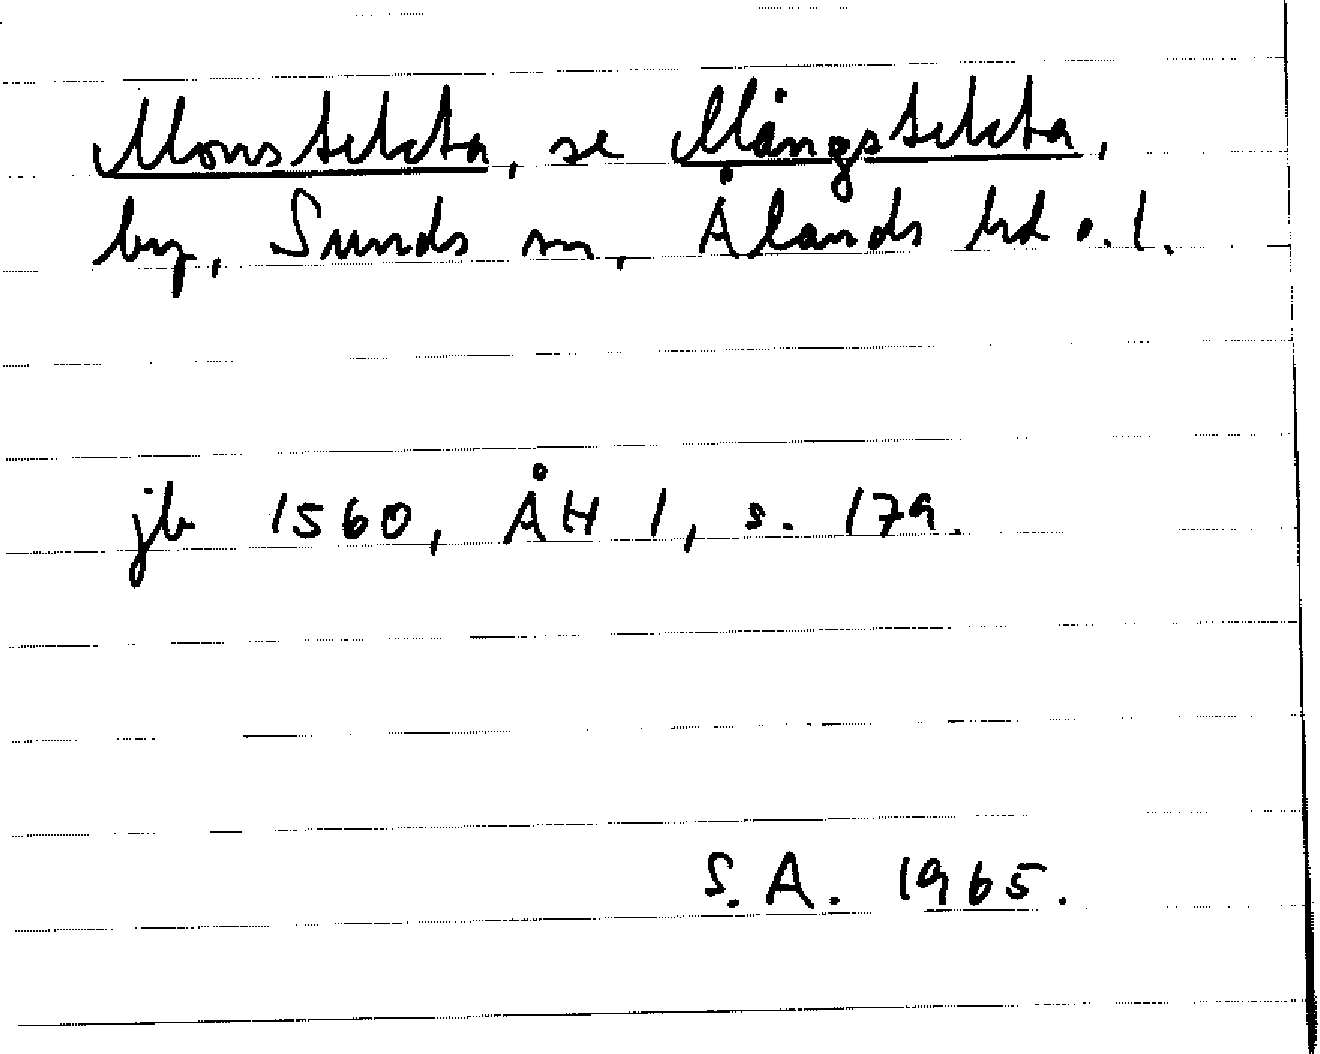 Monstekta, se Mångstekta,
by, Sunds sn, Ålands hd o. l.
jb 1560, ÅH 1, s. 179.
S. A. 1965.